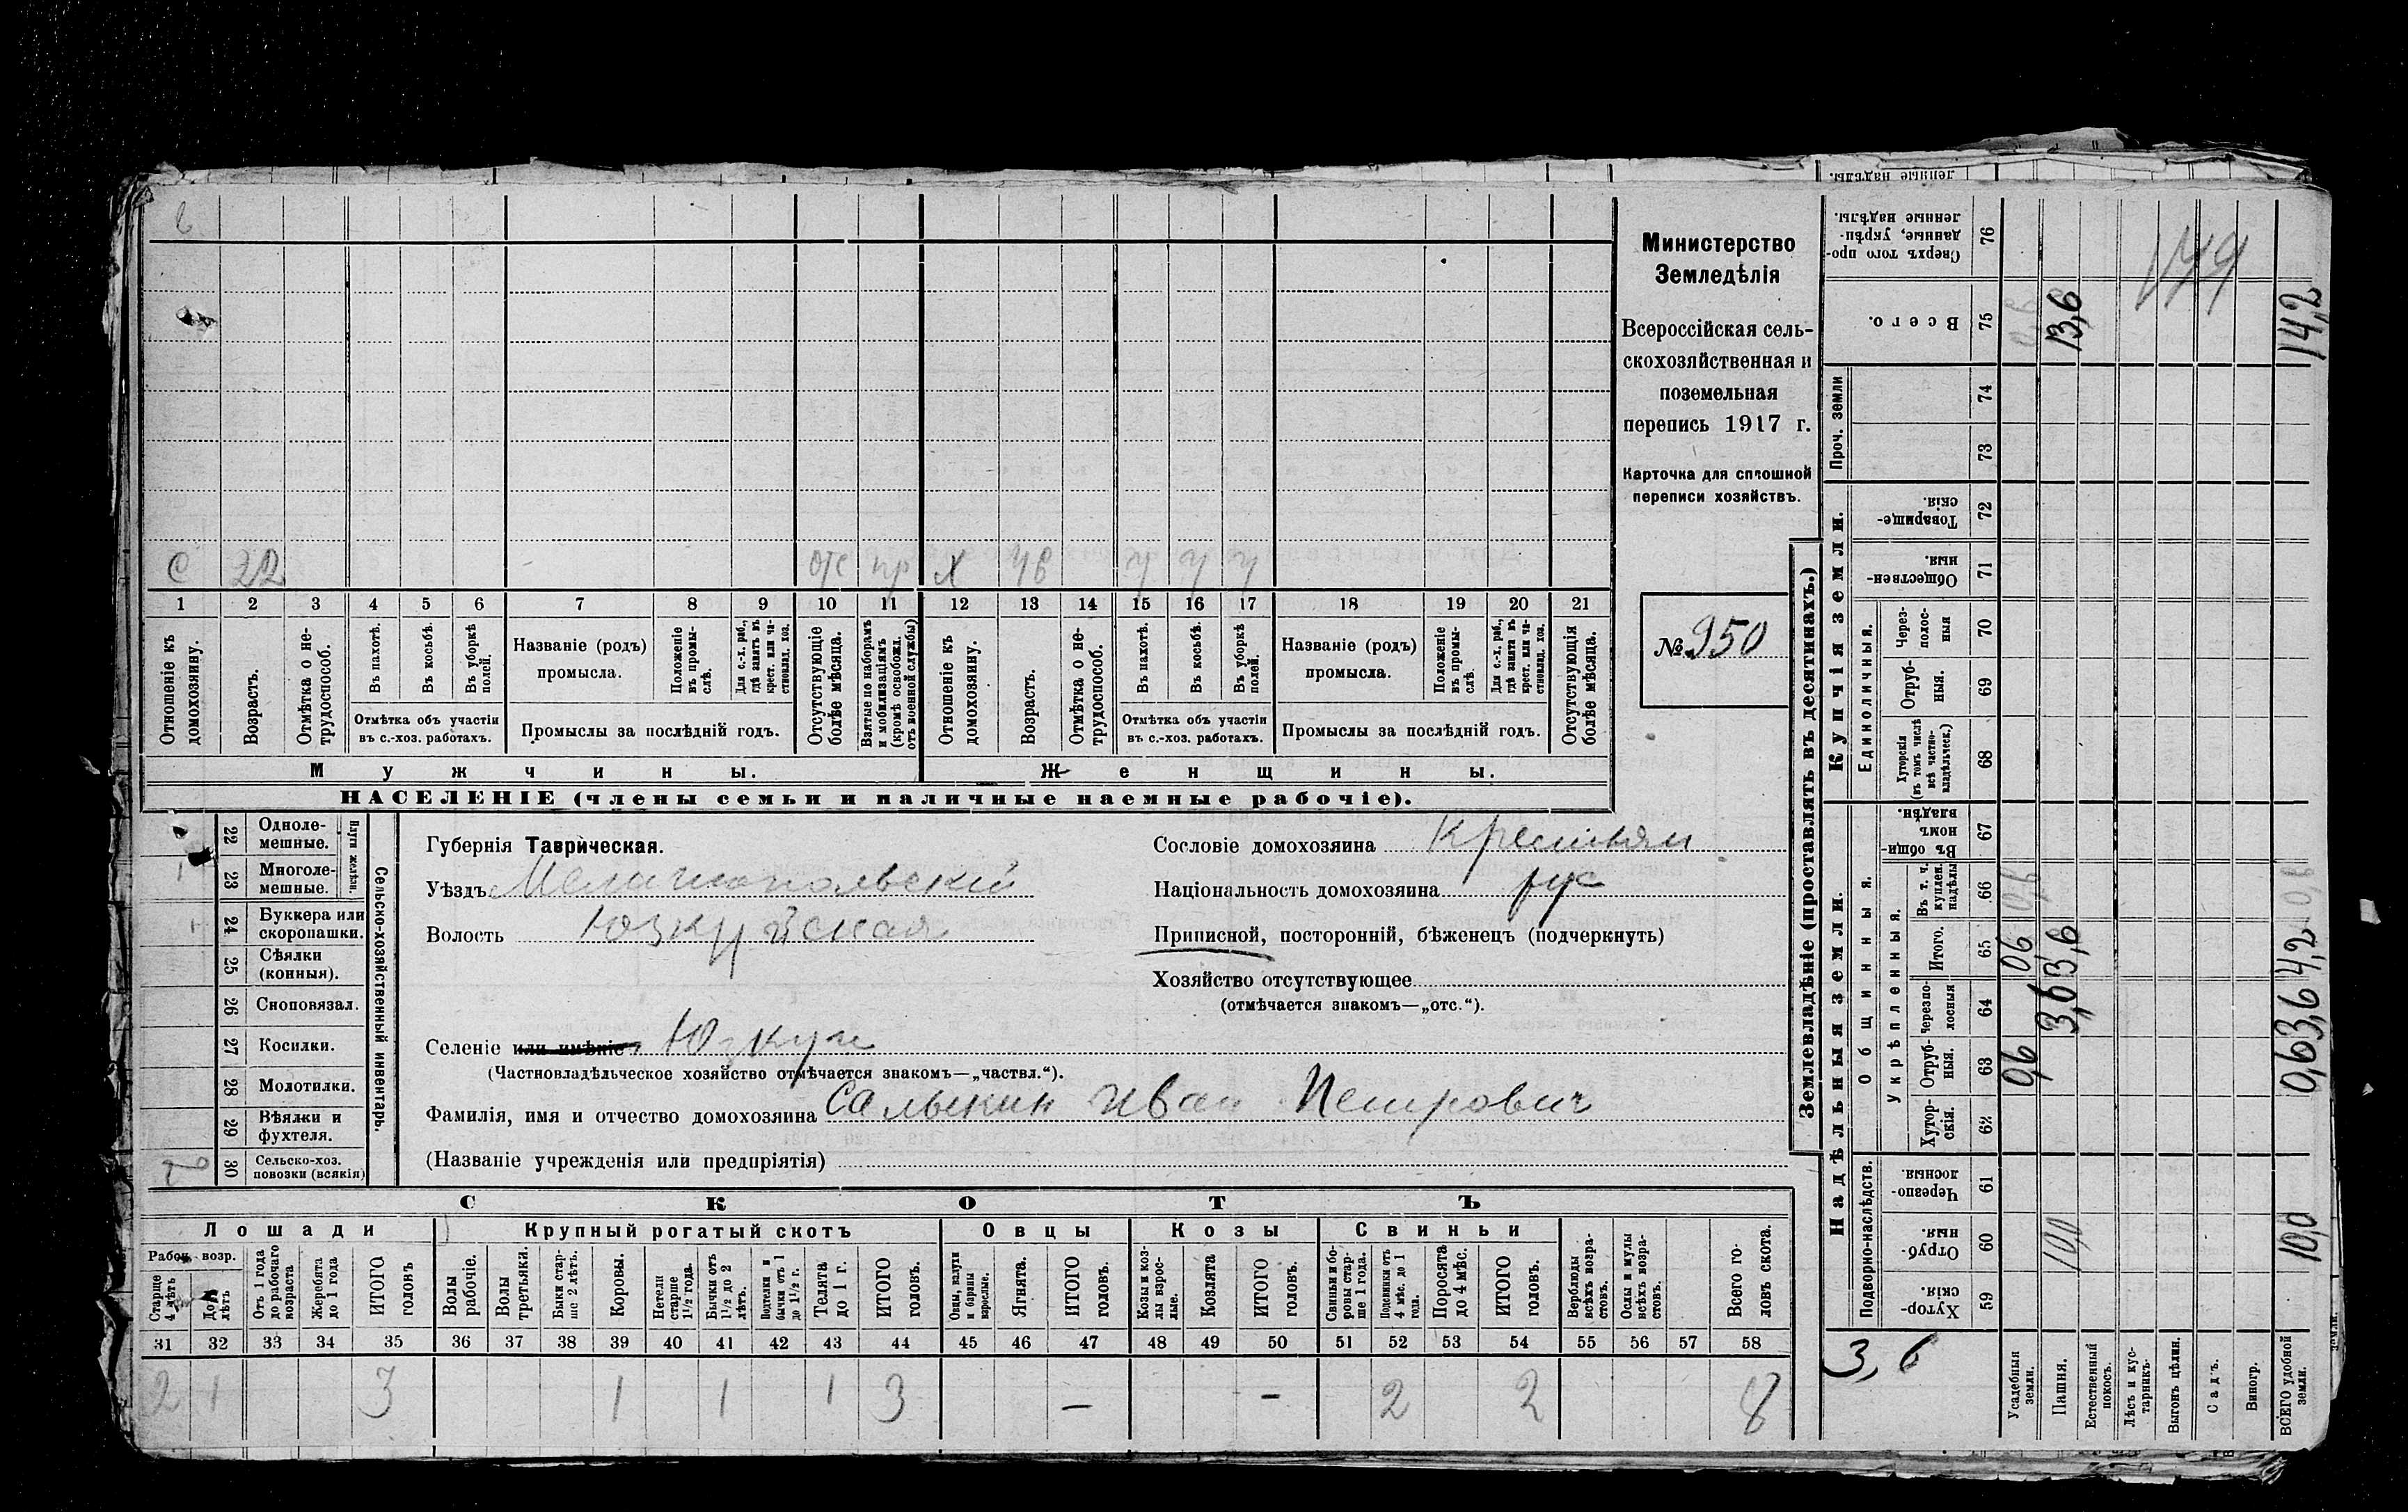 в
С 22 отс пр Х 48 у у у
1 2 3 4 5 6 7 8 9 10 11 12 13 14 15 16 17 18 19 20 21
Отношеніе къ домохозяину.
Возрастъ.
Отмѣтка о не-трудоспособ.
Въ пахотѣ.
Въ косьбѣ.
Въ уборкѣ полей.
Отмѣтка объ участіи
въ с.-хоз. работахъ.
Названіе (родъ)
промысла.
Положеніе въ промы-слѣ.
Для с.-х. раб., гдѣ занятъ въ крест. или ча-стновлад. хоз.
Промыслы за послѣдній годъ.
Отсутствующіе болѣе мѣсяца.
Взятые по наборамъ и мобилизаціямъ (кромѣ освобожд. отъ военной службы)
Отношеніе къ домохозяину.
Возрастъ.
Отмѣтка о не-трудоспособ.
Въ пахотѣ.
Въ косьбѣ.
Въ уборкѣ полей.
Отмѣтка объ участіи
въ с.-хоз. работахъ.
Названіе (родъ)
промысла.
Положеніе въ промы-слѣ.
Для с.-х. раб., гдѣ занята въ крест. или ча-стновлад. хоз.
Промыслы за послѣдній годъ.
Отсутствующія болѣе мѣсяца.
Мужчины.
Женщины.
НАСЕЛЕНІЕ (члены семьи и наличные наемные рабочіе).
Министерство
Земледѣлія
Всероссійская сель-
скохозяйственная и
поземельная
перепись 1917 г.
Карточка для сплошной
переписи хозяйствъ.
№ 950
22 Одноле-мешные.
23 Многоле-мешные. 1
Плуги желѣзн.
24 Буккера или скоропашки. 1
25 Сѣялки (конныя).
26 Сноповязал.
27 Косилки.
28 Молотилки.
29 Вѣялки и фухтеля.
30 Сельско-хоз. повозки (всякія)
Сельско-хозяйственный инвентарь.
Губернія Таврическая.
Уѣздъ Мелитопольскій
Волость Юзкуйская
Селеніе или имѣніе Юзкуи
(Частновладѣльческое хозяйство отмѣчается знакомъ—„частвл.“).
Фамилія, имя и отчество домохозяина Салыкин Иван Петрович
(Названіе учрежденія или предпріятія)
Сословіе домохозяина Крестьян
Національность домохозяина рус
Приписной, посторонній, бѣженецъ (подчеркнуть)
Хозяйство отсутствующее
(отмѣчается знакомъ—„отс.“).
СКОТЪ
Лошади
Крупный рогатый скотъ
Овцы
Козы
Свиньи
Рабоч. возр.
Старше 4 лѣтъ
До 4 лѣтъ
Отъ 1 года до рабочаго возраста
Жеребята до 1 года
ИТОГО головъ
Волы рабочіе.
Волы третьяки.
Быки стар-ше 2 лѣтъ.
Коровы.
Нетели старше 1½ года.
Бычки отъ 1½ до 2 лѣтъ.
Подтелки и бычки отъ 1 до 1½ г.
Телята до 1 г.
ИТОГО головъ.
Овцы, валухи и бараны взрослые.
Ягнята.
ИТОГО головъ.
Козы и коз-лы взрос-лые.
Козлята
ИТОГО головъ.
Свиньи и бо-ровы стар-ше 1 года.
Подсвинки отъ 4 мѣс. до 1 года.
Поросята до 4 мѣс.
ИТОГО головъ.
Верблюды всѣхъ возра-стовъ.
Ослы и мулы всѣхъ возра-стовъ.
Всего го-ловъ скота.
31 32 33 34 35 36 37 38 39 40 41 42 43 44 45 46 47 48 49 50 51 52 53 54 55 56 57 58
2 1 3 1 1 1 3 — – 2 2 8
Землевладѣніе (проставлять въ десятинахъ.)
Надѣльныя земли.
Купчія земли.
Проч. земли
Подворно-наслѣдств.
Общинныя.
Укрѣпленныя.
Единоличныя.
Сверхъ того про-данные, укрѣп-ленные надѣлы. 76
Всего. 75 13,6 14,2
74
73
Товарище-скія. 72
Обществен-ныя. 71
Через-полос-ныя 70
Отруб-ныя. 69
Хуторскія (въ томъ числѣ всѣ частно-владѣльческ.) 68
Въ общин-номъ владѣн. 67
Въ т. ч. куплен. надѣлы 66 0,6
Итого. 65 0,6 3,6 4,2
Черезпо-лосныя 64 3,6 3,6
Отруб-ныя. 63 0,6 0,6
Хутор-скія. 62
Черезпо-лосныя 61
Отруб-ныя. 60 10,0 10,0
Хутор-скія. 59
3,6
Усадебныя земли.
Пашня.
Естественный покосъ.
Лѣсъ и кус-тарникъ.
Выгонъ цѣлин.
Садъ.
Виногр.
ВСЕГО удобной земли.